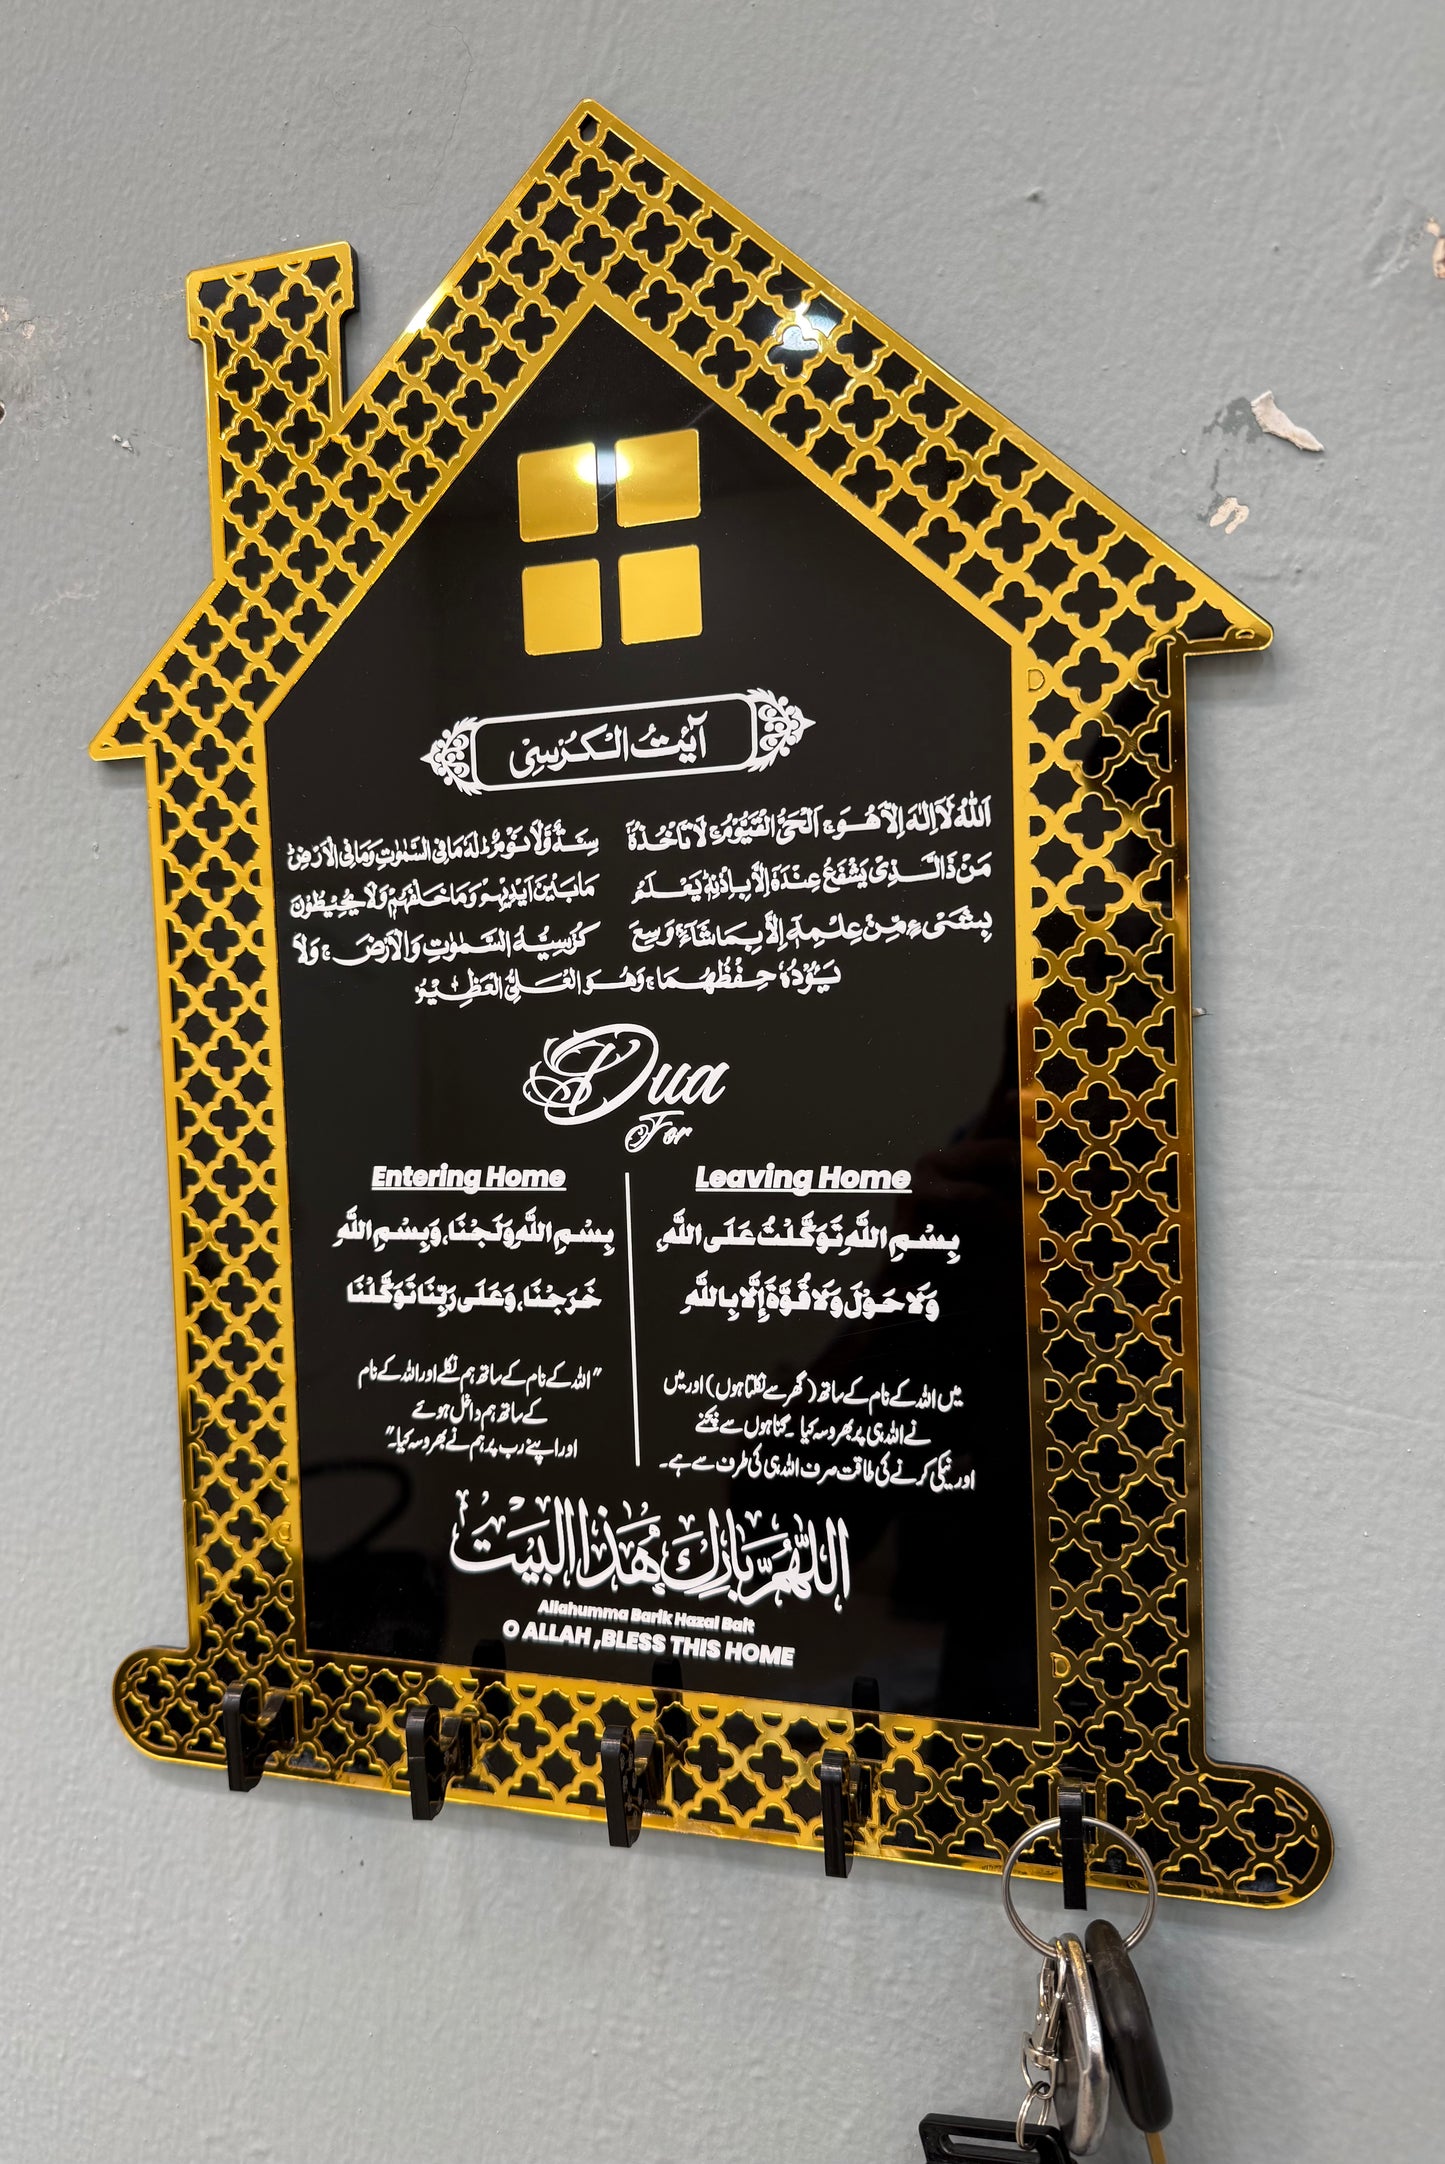 آيَتُ الْكُرْسِي
اَللّٰهُ لَاۤ اِلٰهَ اِلَّا هُوَۚ اَلْحَیُّ الْقَیُّوْمُ لَا تَاْخُذُهٗ سِنَةٌ وَّلَا نَوْمٌؕ لَهٗ مَا فِی السَّمٰوٰتِ وَمَا فِی الْاَرْضِؕ
مَنْ ذَا الَّذِیْ یَشْفَعُ عِنْدَهٗۤ اِلَّا بِاِذْنِهٖؕ یَعْلَمُ مَا بَیْنَ اَیْدِیْهِمْ وَمَا خَلْفَهُمْۚ وَلَا یُحِیْطُوْنَ
بِشَیْءٍ مِّنْ عِلْمِهٖۤ اِلَّا بِمَا شَآءَۚ وَسِعَ كُرْسِیُّهُ السَّمٰوٰتِ وَالْاَرْضَۚ وَلَا
یَـُٔوْدُهٗ حِفْظُهُمَاۚ وَهُوَ الْعَلِیُّ الْعَظِیْمُ
Dua
For
Entering Home
بِسْمِ اللَّهِ وَلَجْنَا، وَبِسْمِ اللَّهِ
خَرَجْنَا، وَعَلَى رَبِّنَا تَوَكَّلْنَا
"اللہ کے نام کے ساتھ ہم نکلے اور اللہ کے نام
کے ساتھ ہم داخل ہوئے
اور اپنے رب پر ہم نے بھروسہ کیا۔"
Leaving Home
بِسْمِ اللَّهِ تَوَكَّلْتُ عَلَى اللَّهِ،
وَلَا حَوْلَ وَلَا قُوَّةَ إِلَّا بِاللَّهِ
میں اللہ کے نام کے ساتھ (گھر سے نکلتا ہوں) اور میں
نے اللہ ہی پر بھروسہ کیا۔ گناہوں سے بچنے
اور نیکی کرنے کی طاقت صرف اللہ ہی کی طرف سے ہے۔
اللهُمَّ بَارِكْ هُذَا البَيْت
Allahumma Barik Hazal Bait
O ALLAH ,BLESS THIS HOME